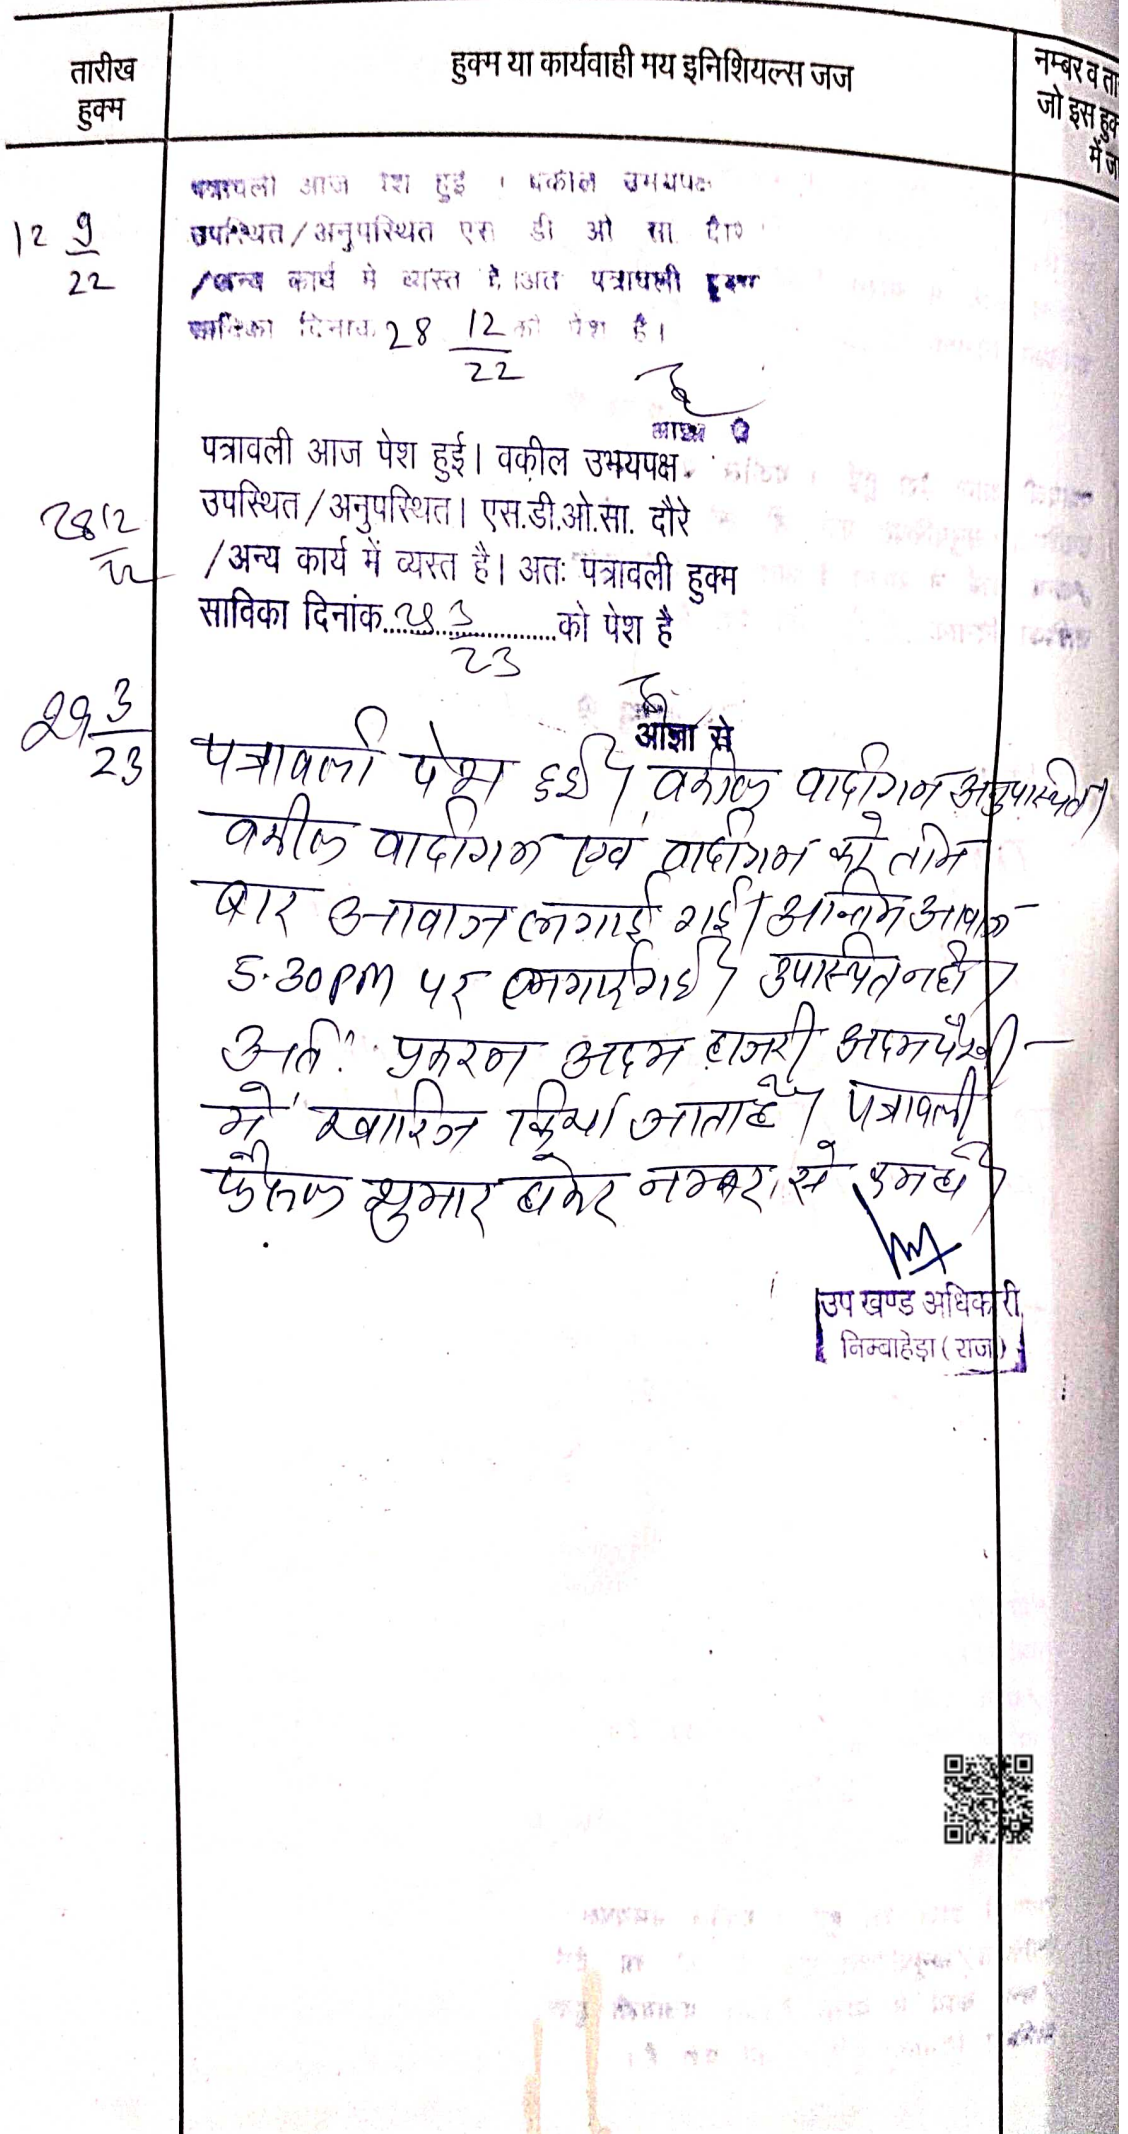 तारीख
हुक्म
हुक्म या कार्यवाही मय इनिशियल्स जज
नम्बर व ता
जो इस हुक
में ज
12 9/22
पत्रावली आज पेश हुई । वकील उभयपक्ष
उपस्थित/अनुपस्थित एस डी ओ सा दौरे
/अन्य कार्य मे व्यस्त है।अत पत्रावली हुक्म
साविका दिनांक 28 12/22 को पेश है।
28 12/22
पत्रावली आज पेश हुई। वकील उभयपक्ष
उपस्थित/अनुपस्थित। एस.डी.ओ.सा. दौरे
/अन्य कार्य में व्यस्त है। अतः पत्रावली हुक्म
साविका दिनांक 29 3/23 को पेश है
आज्ञा से
29 3/23
पत्रावली पेश हुई। वकील वादीगन अनुपस्थित।
वकील वादीगन एवं वादीगन को तीन
बार आवाज लगाई गई। अन्तिम आवाज
5.30 PM पर लगाई गई। उपस्थित नही।
अतः प्रकरन अदम हाजरी अदम पैरवी
में खारिज किया जाता है। पत्रावली
फैसल शुमार होकर नम्बर से कम हो।
उप खण्ड अधिकारी
निम्बाहेड़ा (राज)